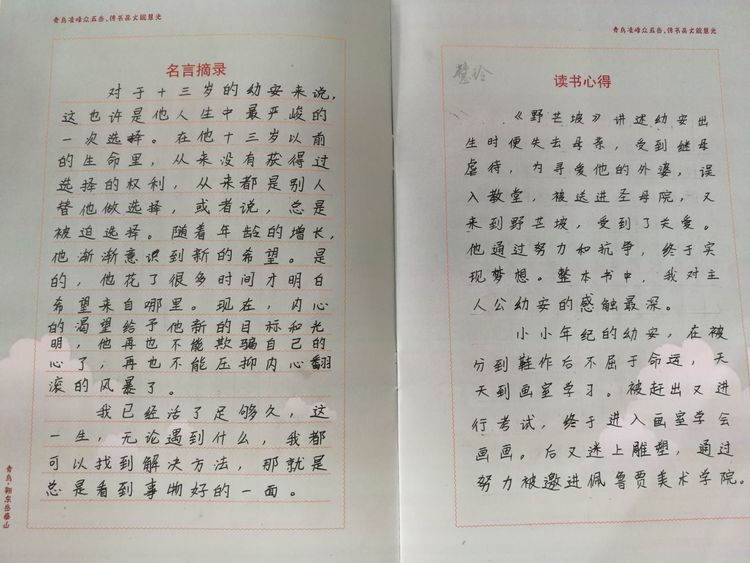 青鸟凌峰众五岳，传书茹文皖慧光
名言摘录
对于十三岁的幼安来说，
这也许是他人生中最严峻的
一次选择。在他十三岁以前
的生命里，从来没有获得过
选择的权利，从来都是别人
替他做选择，或者说，总是
被迫选择。随着年龄的增长，
他渐渐意识到新的希望。是
的，他花了很多时间才明白
希望来自哪里。现在，内心
的渴望给予他新的目标和光
明，他再也不能欺骗自己的
心了，再也不能压抑内心翻
滚的风暴了。
我已经活了足够久，这
一生，无论遇到什么，我都
可以找到解决方法，那就是
总是看到事物好的一面。
青鸟·翱东岳泰山
青鸟凌峰众五岳，传书茹文皖慧光
读书心得
《野芒坡》讲述幼安出
生时便失去母亲，受到继母
虐待，为寻爱他的外婆，误
入教堂，被送进圣母院，又
来到野芒坡，受到了关爱。
他通过努力和抗争，终于实
现梦想。整本书中，我对主
人公幼安的感触最深。
小小年纪的幼安，在被
分到鞋作后不屈于命运，天
天到画室学习。被赶出又进
行考试，终于进入画室学会
画画。后又迷上雕塑，通过
努力被邀进佩鲁贾美术学院。